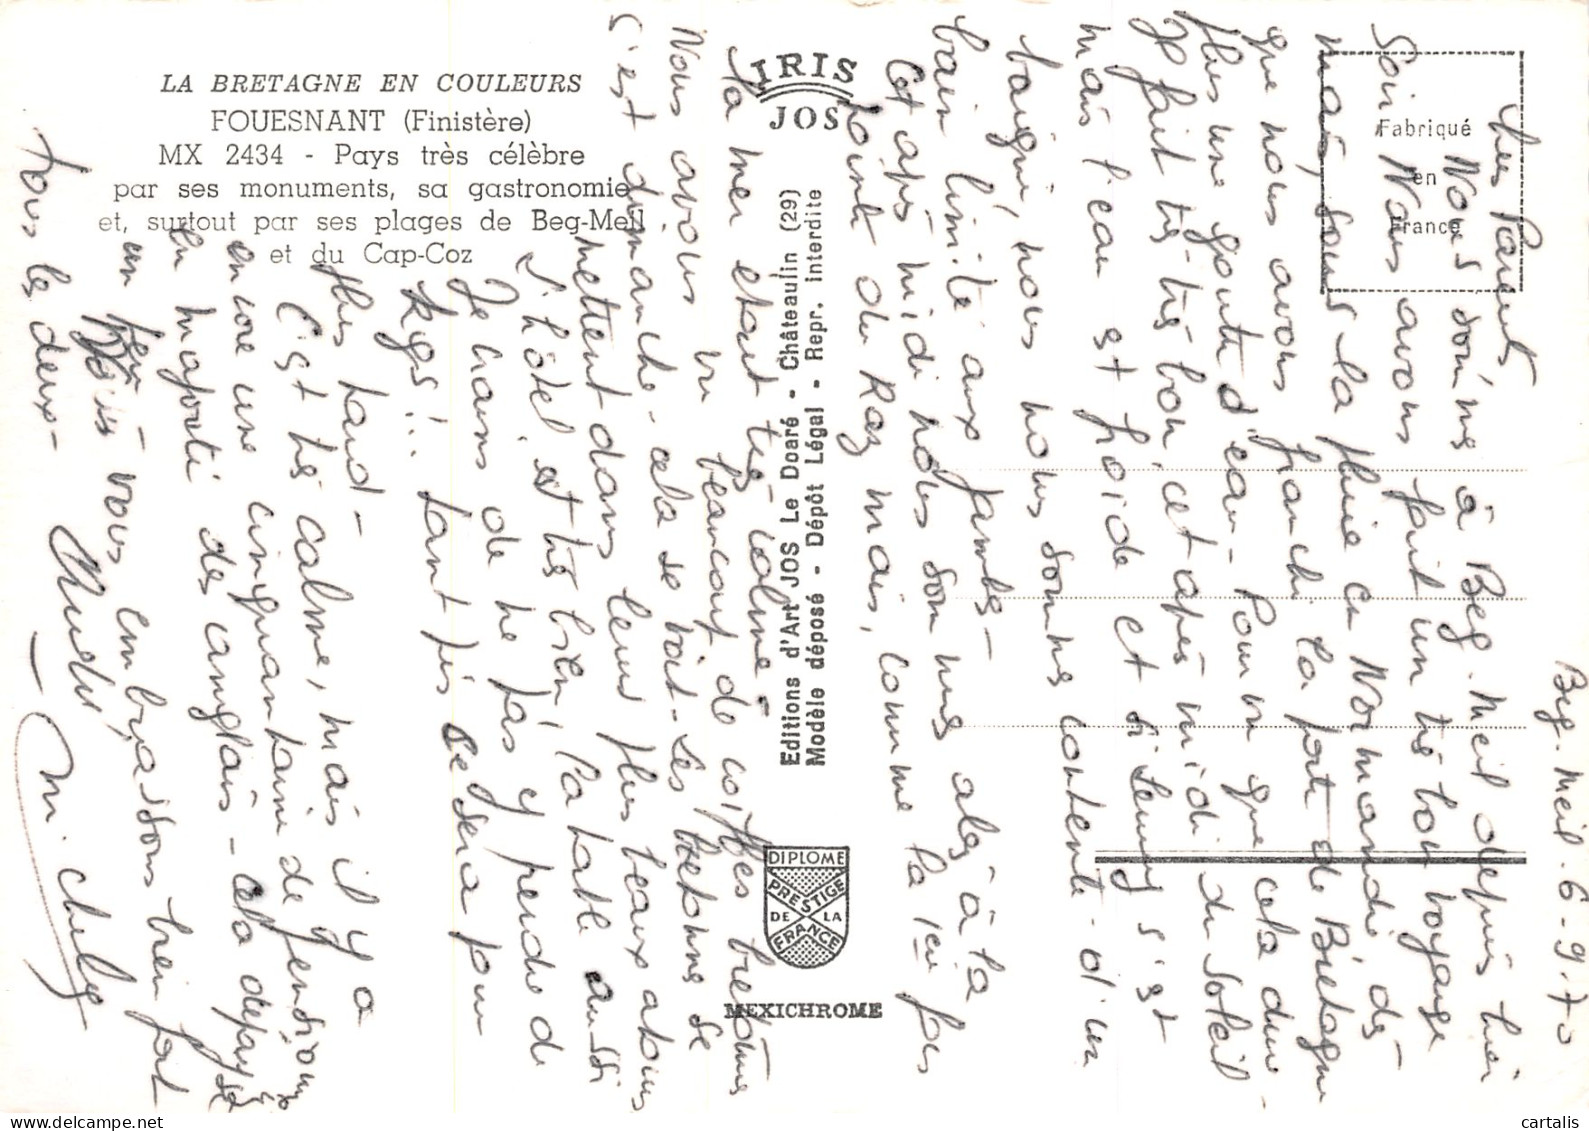 LA BRETAGNE EN COULEURS
FOUESNANT (Finistère)
MX 2434 - Pays très célèbre
par ses monuments, sa gastronomie
et, surtout par ses plages de Beg-Meil
et du Cap-Coz
IRIS
JOS
Fabriqué
en
France
Editions d'Art JOS Le Doaré - Châteaulin (29)
Modèle déposé - Dépôt Légal - Repr. interdite
DIPLOME
PRESTIGE
DE LA
FRANCE
MEXICHROME
Beg. Meil. 6-9-70
Chers Parents
Nous som'mes à Beg. Meil depuis hier
Soir. Nous avons fait un très bon voyage
mais, sous la pluie en Normandie dès
que nous avons franchi la porte de Bretagne
plus une goutte d'eau - Pourvu que cela dure -
Il fait très-très bon, cet après midi du soleil
mais l'eau est froide et si s'est
baigné, nous nous sommes contenté d'un
bain limité aux jambes -
Cet après midi nous sommes alés à la
pointe du Raz mais, comme la 1ère fois
la mer etait très calme -
Nous avions vu beaucoup de coiffes bretonnes
c'est dimanche - cela se voit - les bretonnes se
mettent dans leurs plus beaux atours
L'hôtel est très bien, la table aussi
Je crains de ne pas y perdre de
kgs!.. tant pis ce sera pour
plus tard -
C'est très calme, mais il y a
encore une cinquantaine de pensionnaires
en majorité des anglais - cela dépayse
un peu -
vous embrassons bien fort
tous les deux -